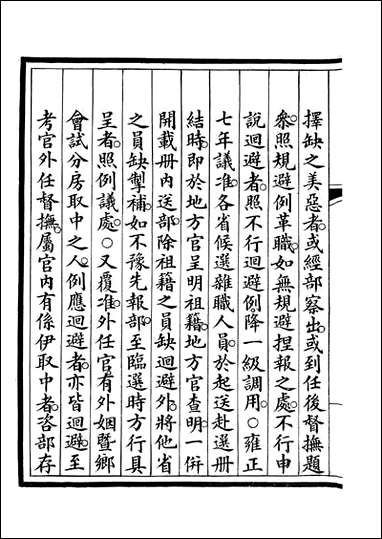 擇缺之美惡者。或經部察出。或到任後督撫題
叅照規避例革職。如無規避捏報之處。不行申
說迴避者。照不行迴避例。降一級調用。○雍正
七年議准。各省候選雜職人員。於起送赴選册
結時。即於地方官呈明祖籍。地方官查明。一併
開載册內送部。除祖籍之員缺迴避外。將他省
之員缺掣補。如不豫先報部。至臨選時方行具
呈者。照例議處。○又覆准。外任官有外姻暨鄉
會試分房取中之人。例應迴避者。亦皆迴避。至
考官外任督撫。屬官內有係伊取中者。咨部存